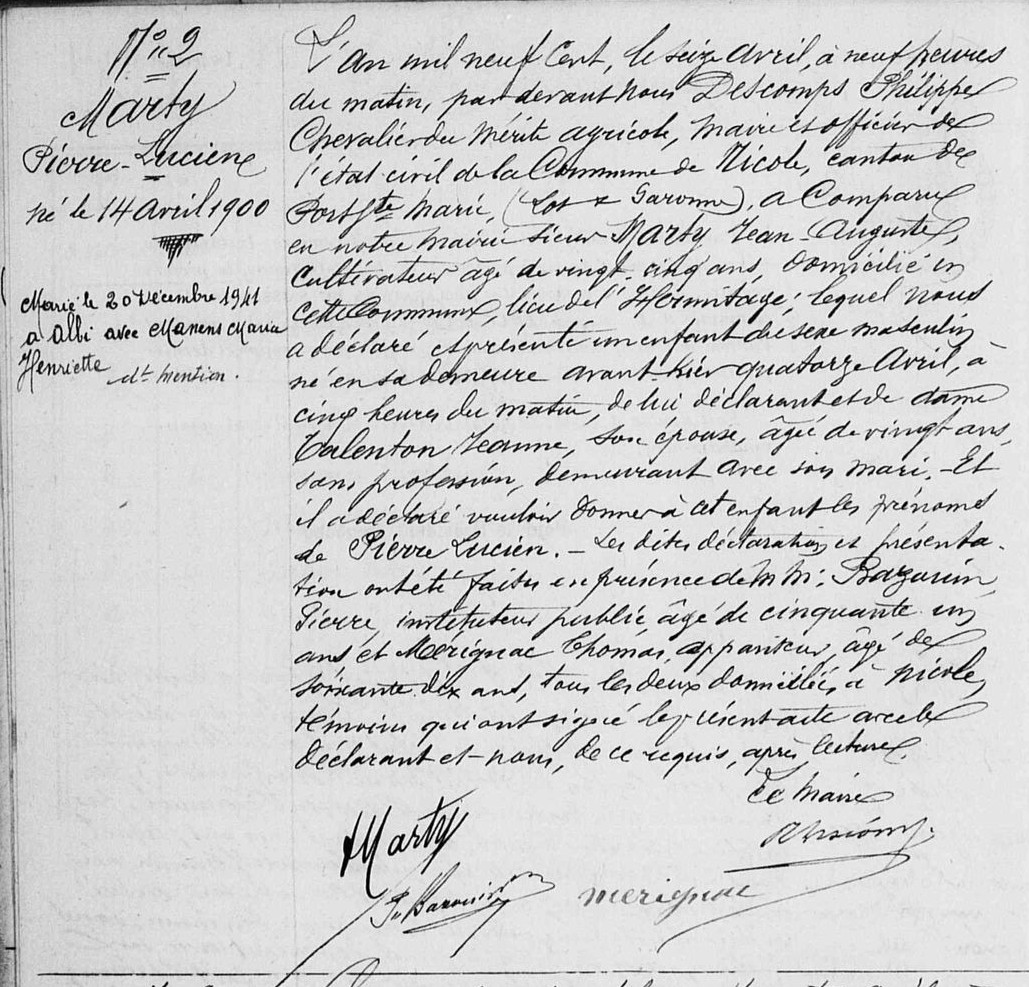 N° 2
Marty
Pierre-Lucien
né le 14 avril 1900
Marié le 20 Décembre 1941
à Albi avec Manens Maria
Henriette
dt mention.
L'an mil neuf cent, le seize avril, à neuf heures
du matin, par devant nous Descomps Philippe
Chevalier du mérite agricole, maire et officier de
l'état civil de la Commune de Nicole, canton de
Port Ste Marie, (Lot & Garonne), a comparu
en notre mairie sieur Marty Jean-Auguste,
cultivateur âgé de vingt-cinq ans, domicilié en
cette Commune, lieu de l'Hermitage; lequel nous
a déclaré et présenté un enfant du sexe masculin
né en sa demeure avant-hier quatorze avril, à
cinq heures du matin, de lui déclarant et de dame
Talenton Jeanne, son épouse, âgée de vingt ans,
sans profession, demeurant avec son mari. - Et
il a déclaré vouloir donner à cet enfant les prénoms
de Pierre Lucien. - Les dites déclaration et présenta-
tion ont été faites en présence de MM:
Pierre, instituteur public âgé de cinquante un
ans et Mérignac Thomas, appariteur, âgé de
soixante dix ans, tous les deux domiciliés à Nicole,
témoins qui ont signé le présent acte avec le
déclarant et nous, de ce requis, après lecture.
Le Maire
Marty
merignac